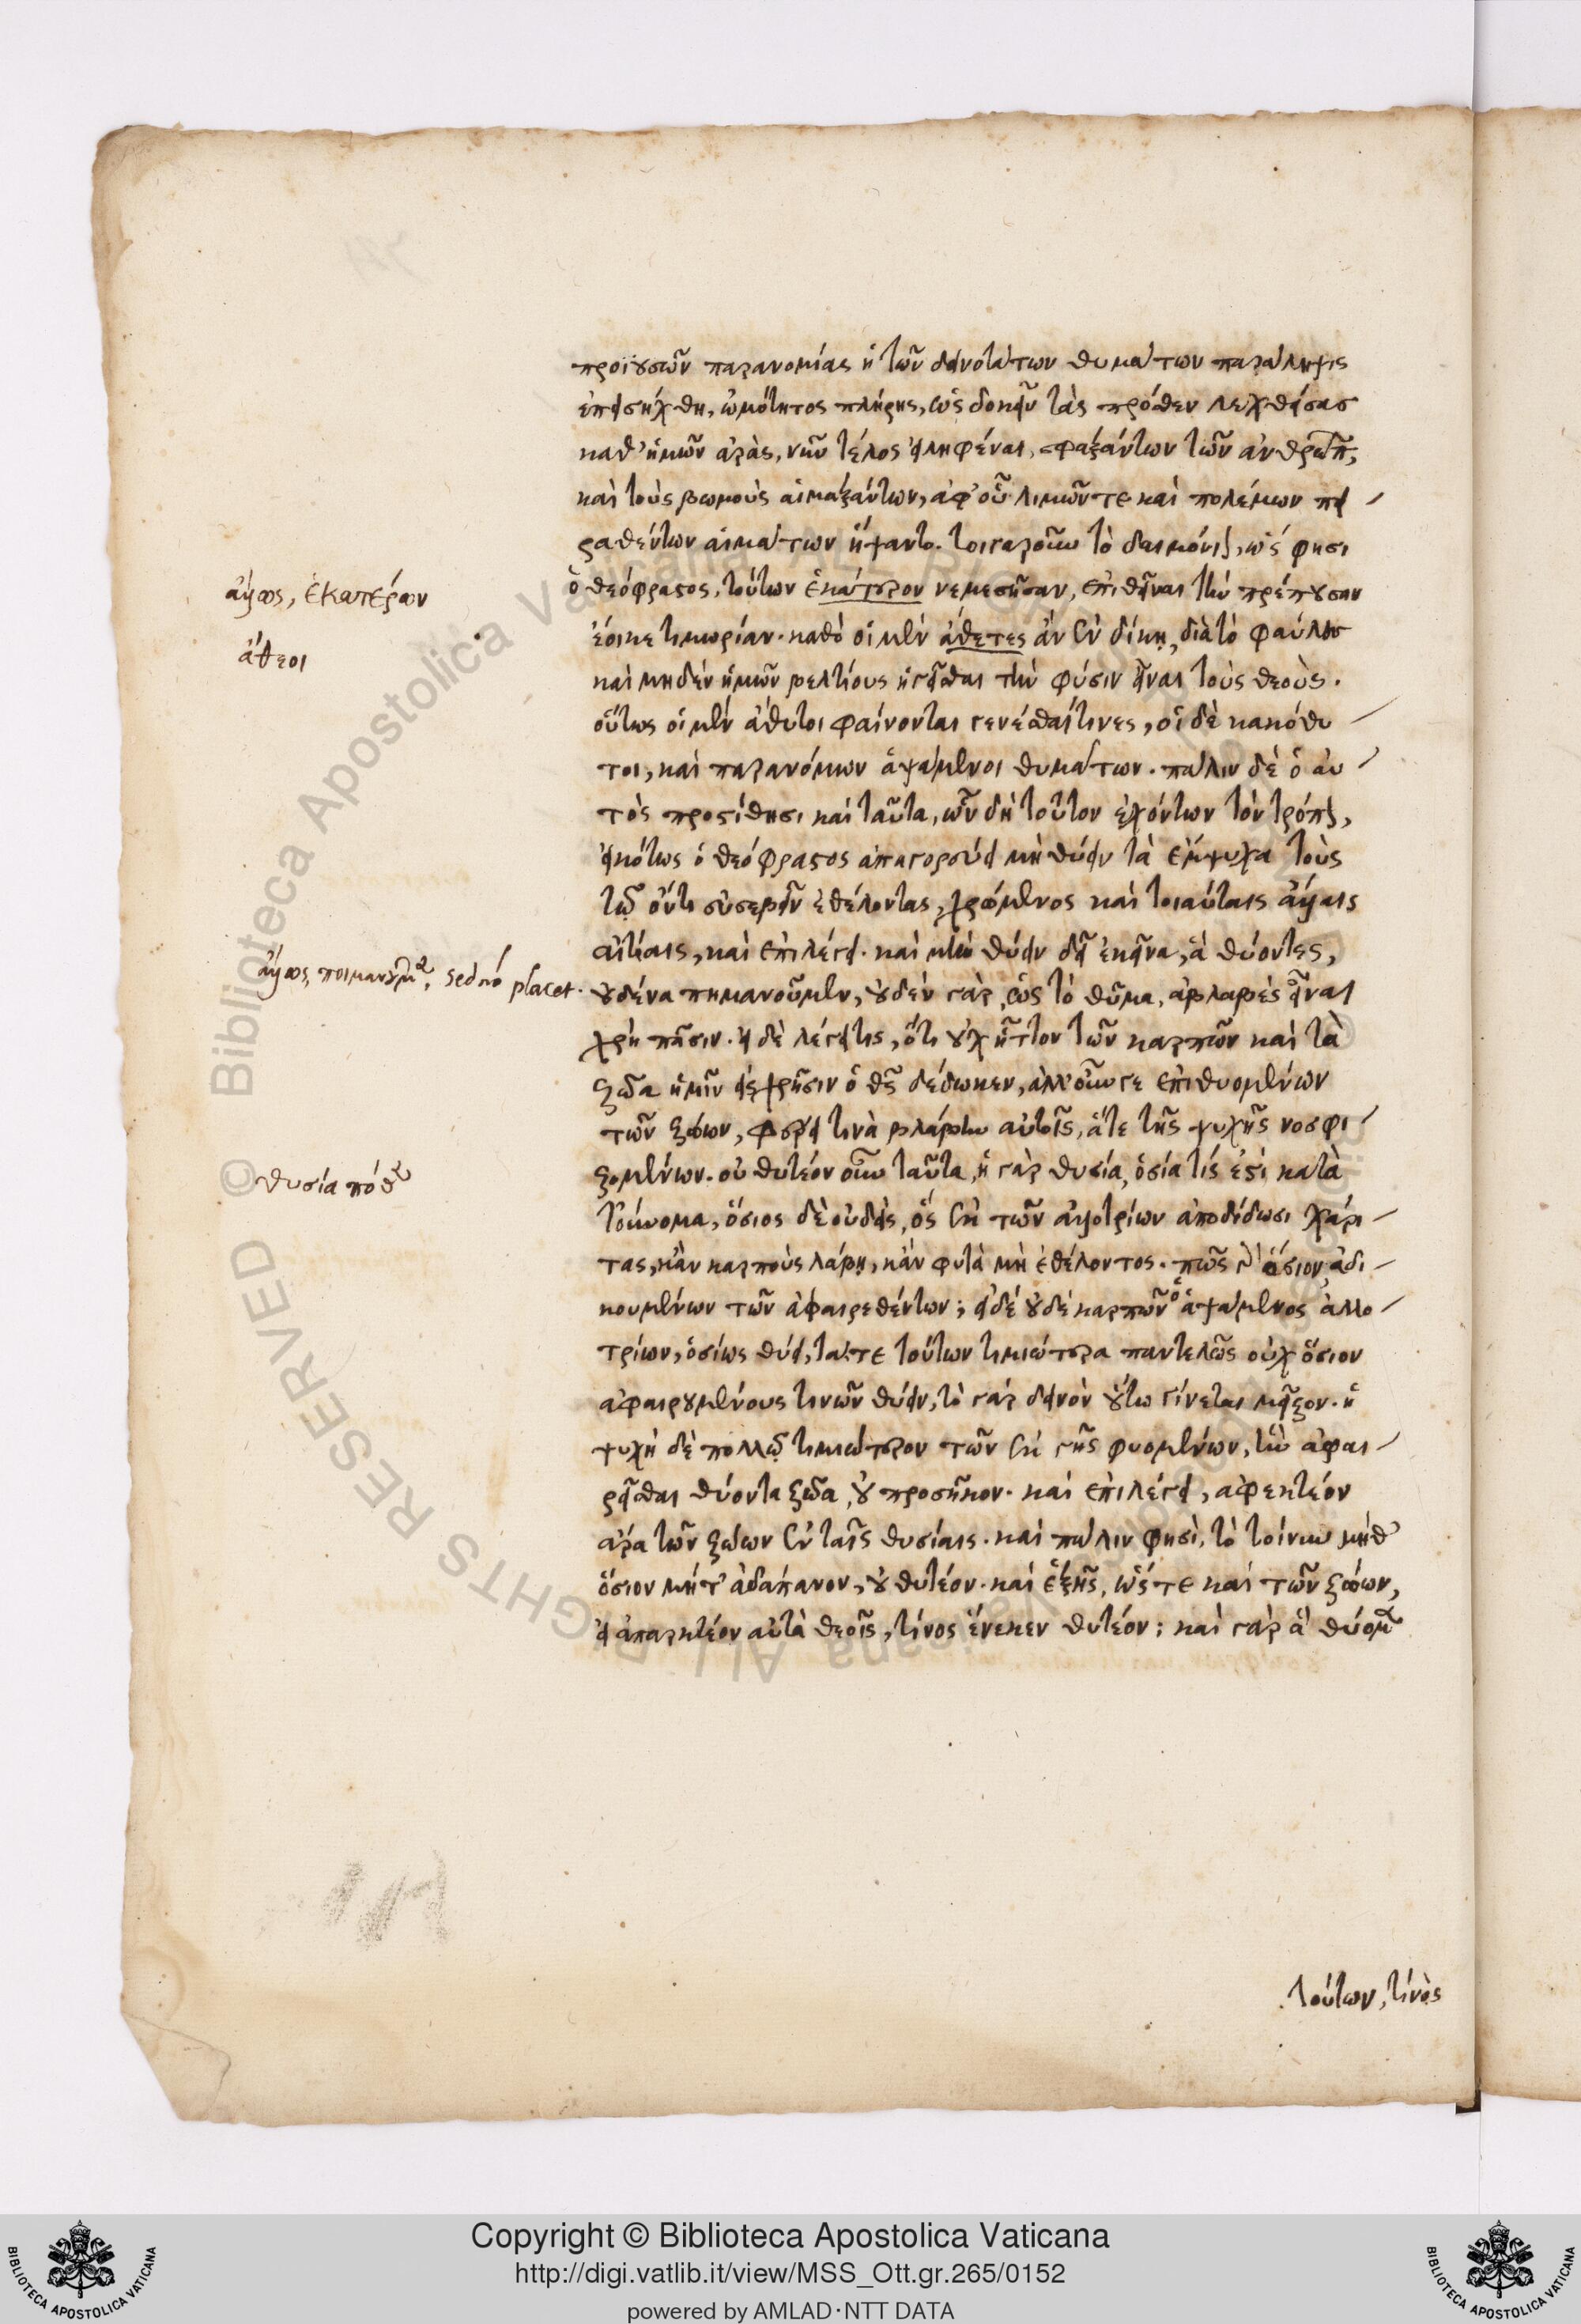 προϊουσῶν παρανομίας ἡ τῶν δεινοτάτων θυμάτων παράληψις
ἐπεισήχθη, ὠμότητος πλήρης, ὡς δοκεῖν τὰς πρόσθεν λεχθείσας
καθ' ἡμῶν ἀρὰς, νῦν τέλος εἰληφέναι, σφαξάντων τῶν ἀνθρώπ,
καὶ τοὺς βωμοὺς αἱμαξάντων, ἀφ' οὗ λιμῶν τε καὶ πολέμων πει
ραθέντων αἱμάτων ἥψαντο. τοιγαροῦν τὸ δαιμόνιον, ὥς φησι
ὁ θεόφραστος, τούτων ἑκάτερον νεμεσῆσαν, ἐπιθεῖναι τὴν πρέπουσαν
ἔοικε τιμωρίαν. καθὸ οἱ μὲν ἄθετες ἂν ἐν δίκῃ, διὰ τὸ φαύλους
καὶ μηδὲν ἡμῶν βελτίους ἡγεῖσθαι τὴν φύσιν εἶναι τοὺς θεοὺς.
οὕτως οἱ μὲν ἄθυτοι φαίνονται γενέσθαι τινες, οἱ δὲ κακόθυ
τοι, καὶ παρανόμων ἁψάμενοι θυμάτων. πάλιν δὲ ὁ αὐ
τὸς προστίθησι καὶ ταῦτα, ὧν δὴ τοῦτον ἐχόντων τὸν τρόπον,
εἰκότως ὁ θεόφραστος ἀπαγορεύει μὴ θύειν τὰ ἔμψυχα τοὺς
τῷ ὄντι εὐσεβεῖν ἐθέλοντας, χρώμενος καὶ τοιαύταις ἄλλαις
αἰτίαις, καὶ ἐπιλέγει. καὶ μὴν θύειν δεῖ ἐκεῖνα, ἃ θύοντες,
οὐδένα πημανοῦμεν, οὐδὲν γὰρ, ὡς τὸ θῦμα, ἀβλαβὲς εἶναι
χρὴ πᾶσιν. εἰ δὲ λέγει τις, ὅτι οὐχ ἧττον τῶν καρπῶν καὶ τὰ
ζῶα ἡμῖν εἰς χρῆσιν ὁ θς δέδωκεν, ἀλλ' οὖν γε ἐπιθυομένων
τῶν ζώων, φέρει τινὰ βλάβην αὐτοῖς, ἅτε τῆς ψυχῆς νοσφι
ζομένων. οὐ θυτέον οὖν ταῦτα, ἡ γὰρ θυσία, ὁσία τίς ἐστι κατὰ
τοὔνομα, ὅσιος δὲ οὐδεὶς, ὃς ἐκ τῶν ἀλλοτρίων ἀποδίδωσι χάρι
τας, κἂν καρποὺς λάβῃ, κἂν φυτὰ μὴ ἐθέλοντος. πῶς γὰρ ὅσιον, ἀδι
κουμένων τῶν ἀφαιρεθέντων; εἰ δὲ οὐδὲ καρπῶν ὁ ἁψάμενος ἀλλο
τρίων, ὁσίως θύει, τά τε τούτων τιμιώτερα παντελῶς οὐχ ὅσιον
ἀφαιρουμένους τινῶν θύειν, τὸ γὰρ δεινὸν οὕτω γίνεται μεῖζον. ἡ
ψυχὴ δὲ πολλῷ τιμιώτερον τῶν ἐκ γῆς φυομένων, ἣν ἀφαι
ρεῖσθαι θύοντα ζῶα, οὐ προσῆκον. καὶ ἐπιλέγει, ἀφεκτέον
ἄρα τῶν ζώων ἐν ταῖς θυσίαις. καὶ πάλιν φησὶ, τὸ τοίνυν μήθ'
ὅσιον μήτ' ἀδάπανον, οὐ θυτέον. καὶ ἑξῆς, ὥστε καὶ τῶν ζώων,
εἰ ἀπαρκτέον αὐτὰ θεοῖς, τίνος ἕνεκεν θυτέον; καὶ γὰρ ἃ θύομεν
τούτων, τίνος
ἄλλως, ἑκατέρων
ἄθεοι
ἄλλως, ποιμανοῦμεν, sed nō placet.
θυσία πόθεν
Copyright © Biblioteca Apostolica Vaticana
http://digi.vatlib.it/view/MSS_Ott.gr.265/0152
powered by AMLAD·NTT DATA
BIBLIOTECA APOSTOLICA VATICANA
BIBLIOTECA APOSTOLICA VATICANA
© Biblioteca Apostolica Vaticana ALL RIGHTS RESERVED